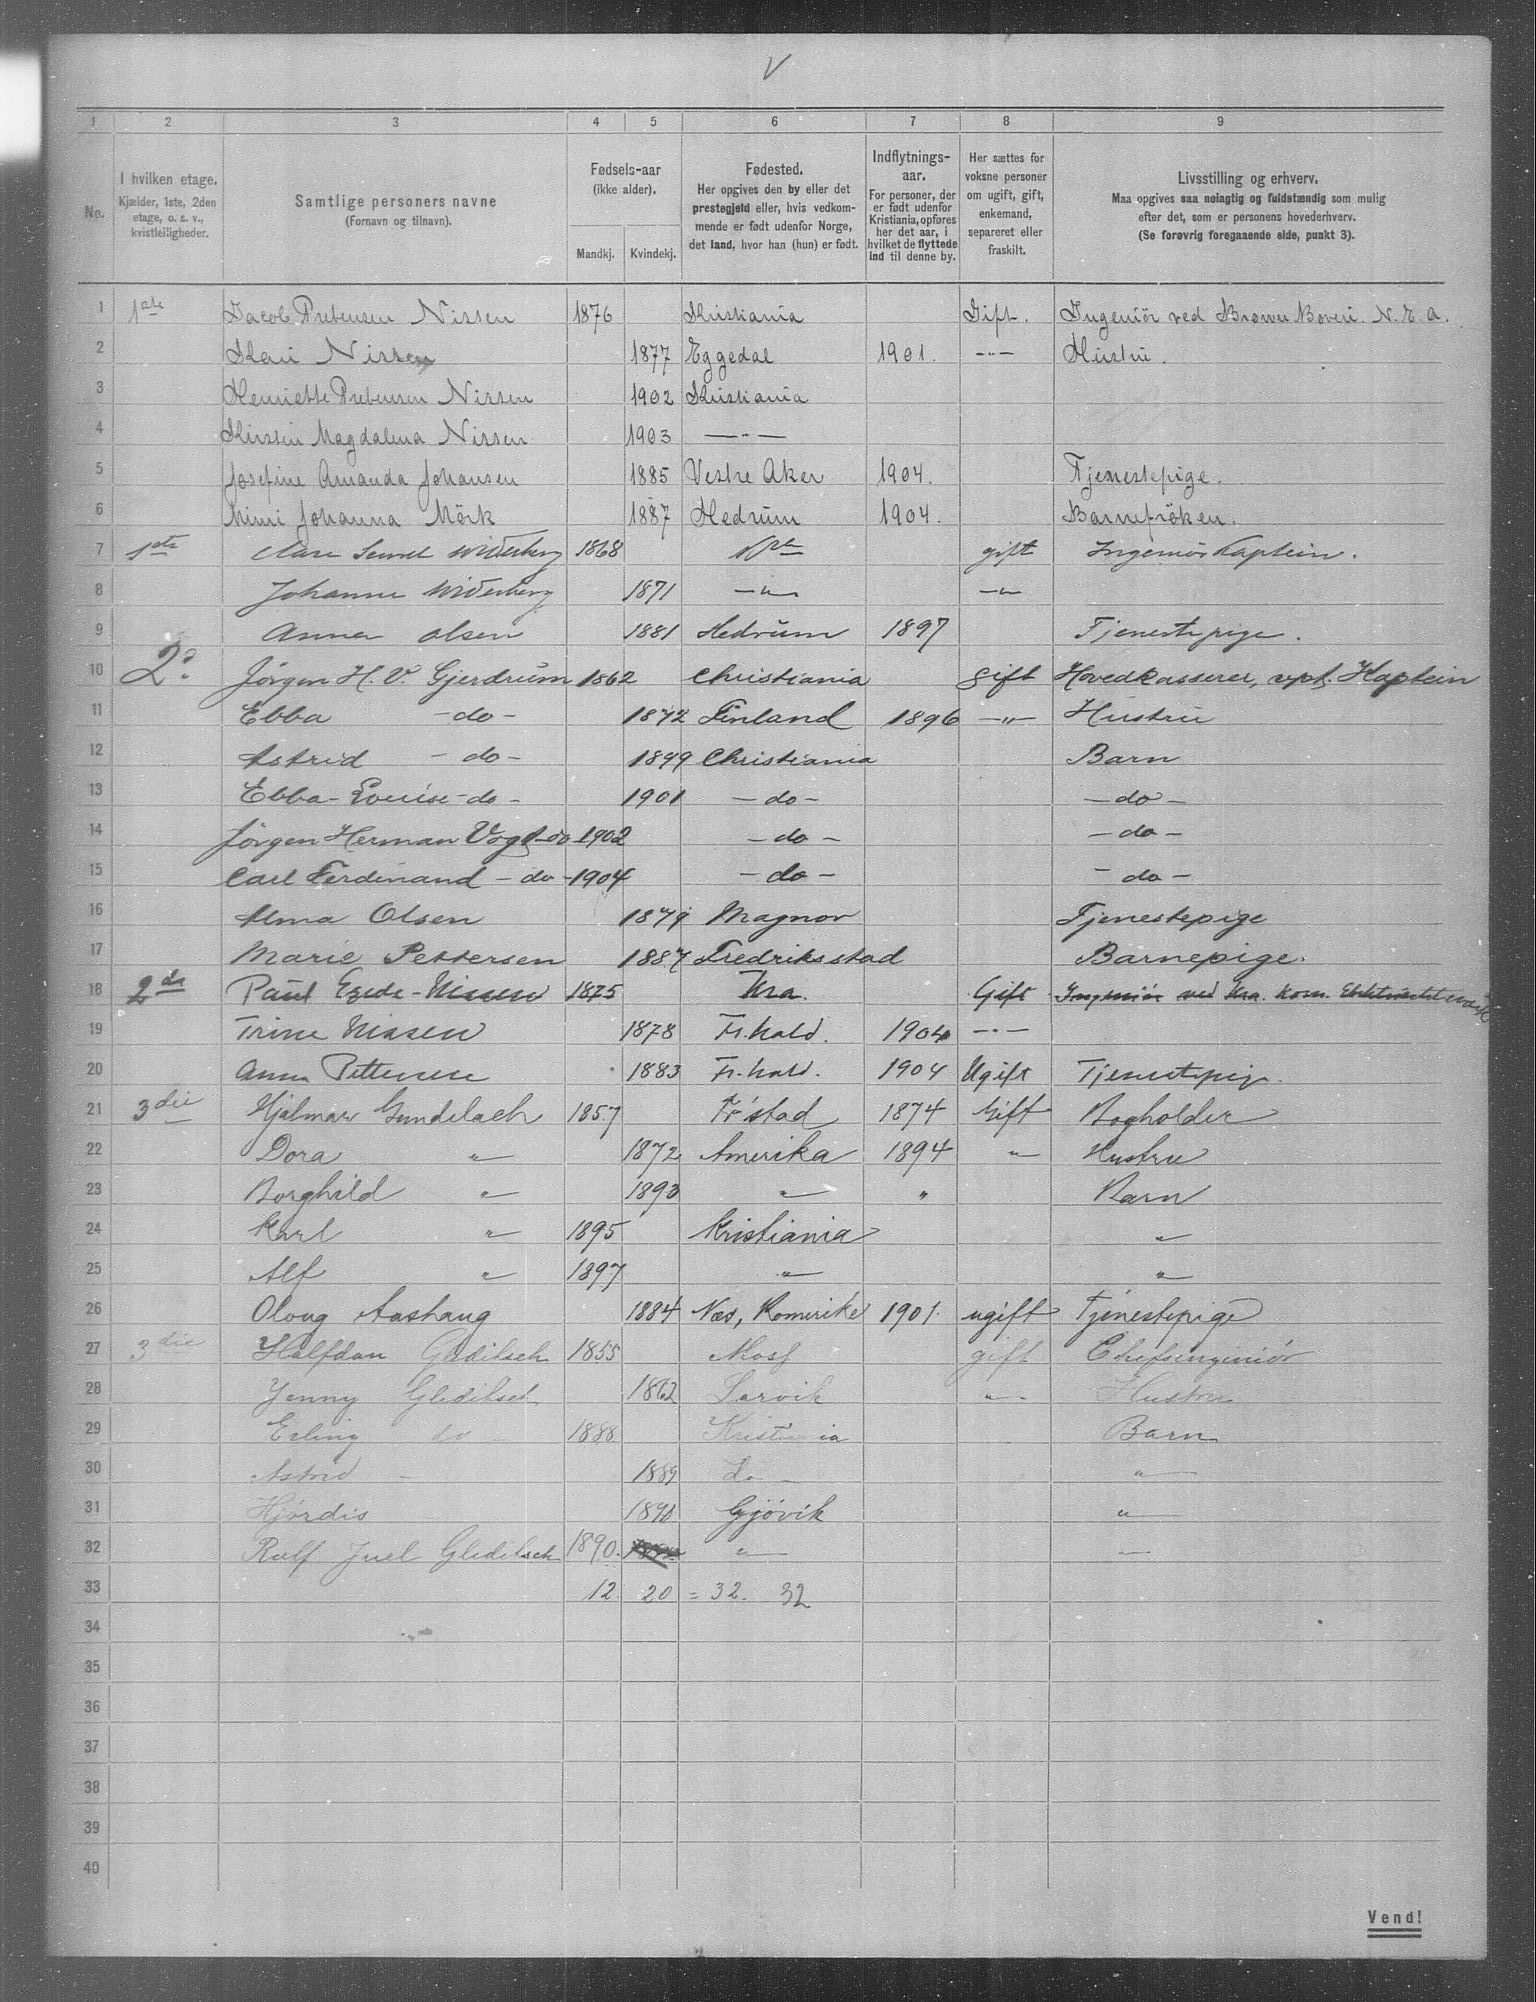 V
1 2 3 4 5 6 7 8 9
No.
I hvilken etage.
Kjælder, 1ste, 2den
etage, o. s. v.,
kvistleiligheder.
Samtlige personers navne
(Fornavn og tilnavn).
Fødsels-aar
(ikke alder).
Mandkj. Kvindekj.
Fødested.
Her opgives den by eller det
prestegjeld eller, hvis vedkom-
mende er født udenfor Norge,
det land, hvor han (hun) er født.
Indflytnings-
aar.
For personer, der
er født udenfor
Kristiania, opføres
her det aar, i
hvilket de flyttede
ind til denne by.
Her sættes for
voksne personer
om ugift, gift,
enkemand,
separeret eller
fraskilt.
Livsstilling og erhverv.
Maa opgives saa nøiagtig og fuldstændig som mulig
efter det, som er personens hovederhverv.
(Se forøvrig foregaaende side, punkt 3).
1 1ste Jacob Prebensen Nissen 1876 Kristiania Gift. Ingeniör ved Brown Boveri. N. E. A.
2 Kari Nissen 1877 Eggedal 1901. -"- Hustru.
3 Henriette Prebensen Nissen 1902 Kristiania
4 Kirsten Magdalena Nissen 1903 -"-
5 Josefine Amanda Johansen 1885 Vestre Aker 1904. Tjenestepige.
6 Mimi Johanna Mörk 1887 Hedrum 1904. Barnefröken.
7 1ste Widerberg 1868 gift Ingeniør Kaptein.
8 Johanne Widerberg 1871 -"- -"-
9 Anna Olsen 1881 Hedrum 1897 Tjenestepige.
10 2. Jörgen H. V. Gjerdrum 1862 Christiania gift Hovedkasserer, vpl. Kaptein
11 Ebba -do- 1872 Finland 1896 -"- Hustru
12 Astrid -do- 1899 Christiania Barn
13 Ebba-Louise-do- 1901 -do- -do-
14 Jörgen Herman Vogt-do- 1902 -do- -do-
15 Carl Ferdinand -do- 1904 -do- -do-
16 Alma Olsen 1879 Magnor Tjenestepige
17 Marie Pettersen 1887 Fredriksstad Barnepige.
18 2de Paul Egede-Nissen 1875 Kra. Gift Ingeniör ved Kra. kom. Elektricitetsværk
19 Trine Nissen 1878 Fr.hald. 1904 -"-
20 Anna Pettersen 1883 Fr.hald. 1904 Ugift Tjenestepige.
21 3die Hjalmar Gundelach 1857 Fr'stad 1874 Gift Bogholder
22 Dora " 1872 Amerika 1894 " Hustru
23 Borghild " 1893 " " Barn
24 Karl " 1895 Kristiania "
25 Alf " 1897 " "
26 Oloug Aashaug 1884 Næs, Romerike 1901. ugift Tjenestepige
27 3die Halfdan Gleditsch 1855 Moss gift Chefsingeniör
28 Jenny Gleditsch 1862 Larvik " Hustru
29 Erling do 1888 Kristiania Barn
30 Astrid - 1889 Do - "
31 Hjördis 1890 Gjövik "
32 Rolf Juel Gleditsch 1890. " "
33 12. 20 = 32. 32
34
35
36
37
38
39
40
Vend!